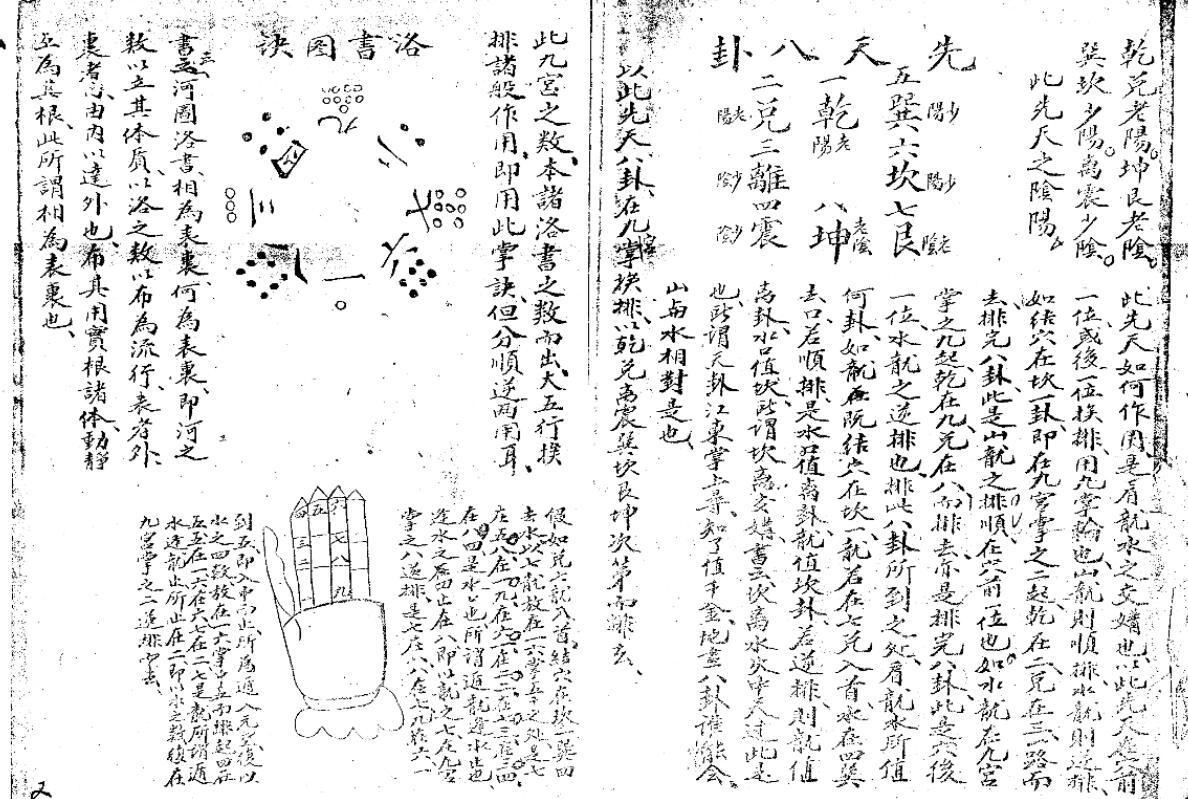 乾兌老陽。坤艮老陰。
巽坎少陽。离震少陰。
此先天之陰陽
先天八卦
五巽少陽六坎少陽七艮老陰
一乾老陽 八坤老陰
二兌老陽三離少陰四震少陰
以此先天八卦、在九宮掌挨排、以乾兌离震巽坎艮坤次第而排去、
此先天如何作用、是看龍水之交媾也、以此先天應前
一位或後一位挨排、用九掌輪也、山龍則順排、水龍則逆排、
如結穴在坎一卦、即在九宮掌之二起乾、在二兌在三、一路而
去、排完八卦、此是山龍之排順、在穴前一位也。如水龍在九宮
掌之九起乾、在九兌在八、而排去、亦是排完八卦、此是穴後
一位水龍之逆排也、排此八卦所到之處、看龍水所值
何卦、如龍 既結穴在坎一、龍若在七兌入首、水在四巽
去口、若順排、是水口值离卦、龍值坎卦、若逆排、則龍值
离卦、水口值坎、此謂坎离交媾、書云、坎离水火中天过、此是
也、所謂天卦江東掌上尋、知了值千金、地畫八卦誰能会、
山與水相對是也、
此九宮之数、本諸洛書之数而出、大五行挨
排諸般作用、即用此掌訣、但分順逆兩用耳、
洛書图訣
九
二
四
七
三
六
八
一
書云、河圖洛書、相為表裏、何為表裏、即河之
数以立其体质、以洛之数以布為流行、表者外、
裏者 由內以達外也、布其用實根諸体、動靜
互為其根、此所謂相為表裏也、
假如兌六龍入首、結穴在坎一、巽四
去水、以七龍放在一六掌五 之处、是七
在五、八在一、九在六、一在二、二在七、三在三、四
在八、四是水口也、所謂遁龍逢水止也、
逢水之 四止在八、即以龍之七在九宮
掌之八逆排、是七在八、八在七、九在六、一
到五、即入中而止、所為遁入元
水之四数放在一六掌 五而排起、四在
五、五在一、六在六、七在二、七是龍、所謂遁
水逢龍止、所止在二、即以水之数復在
九宮掌之二逆排完去、
四 五 六
三 七
二 八
一 九
又